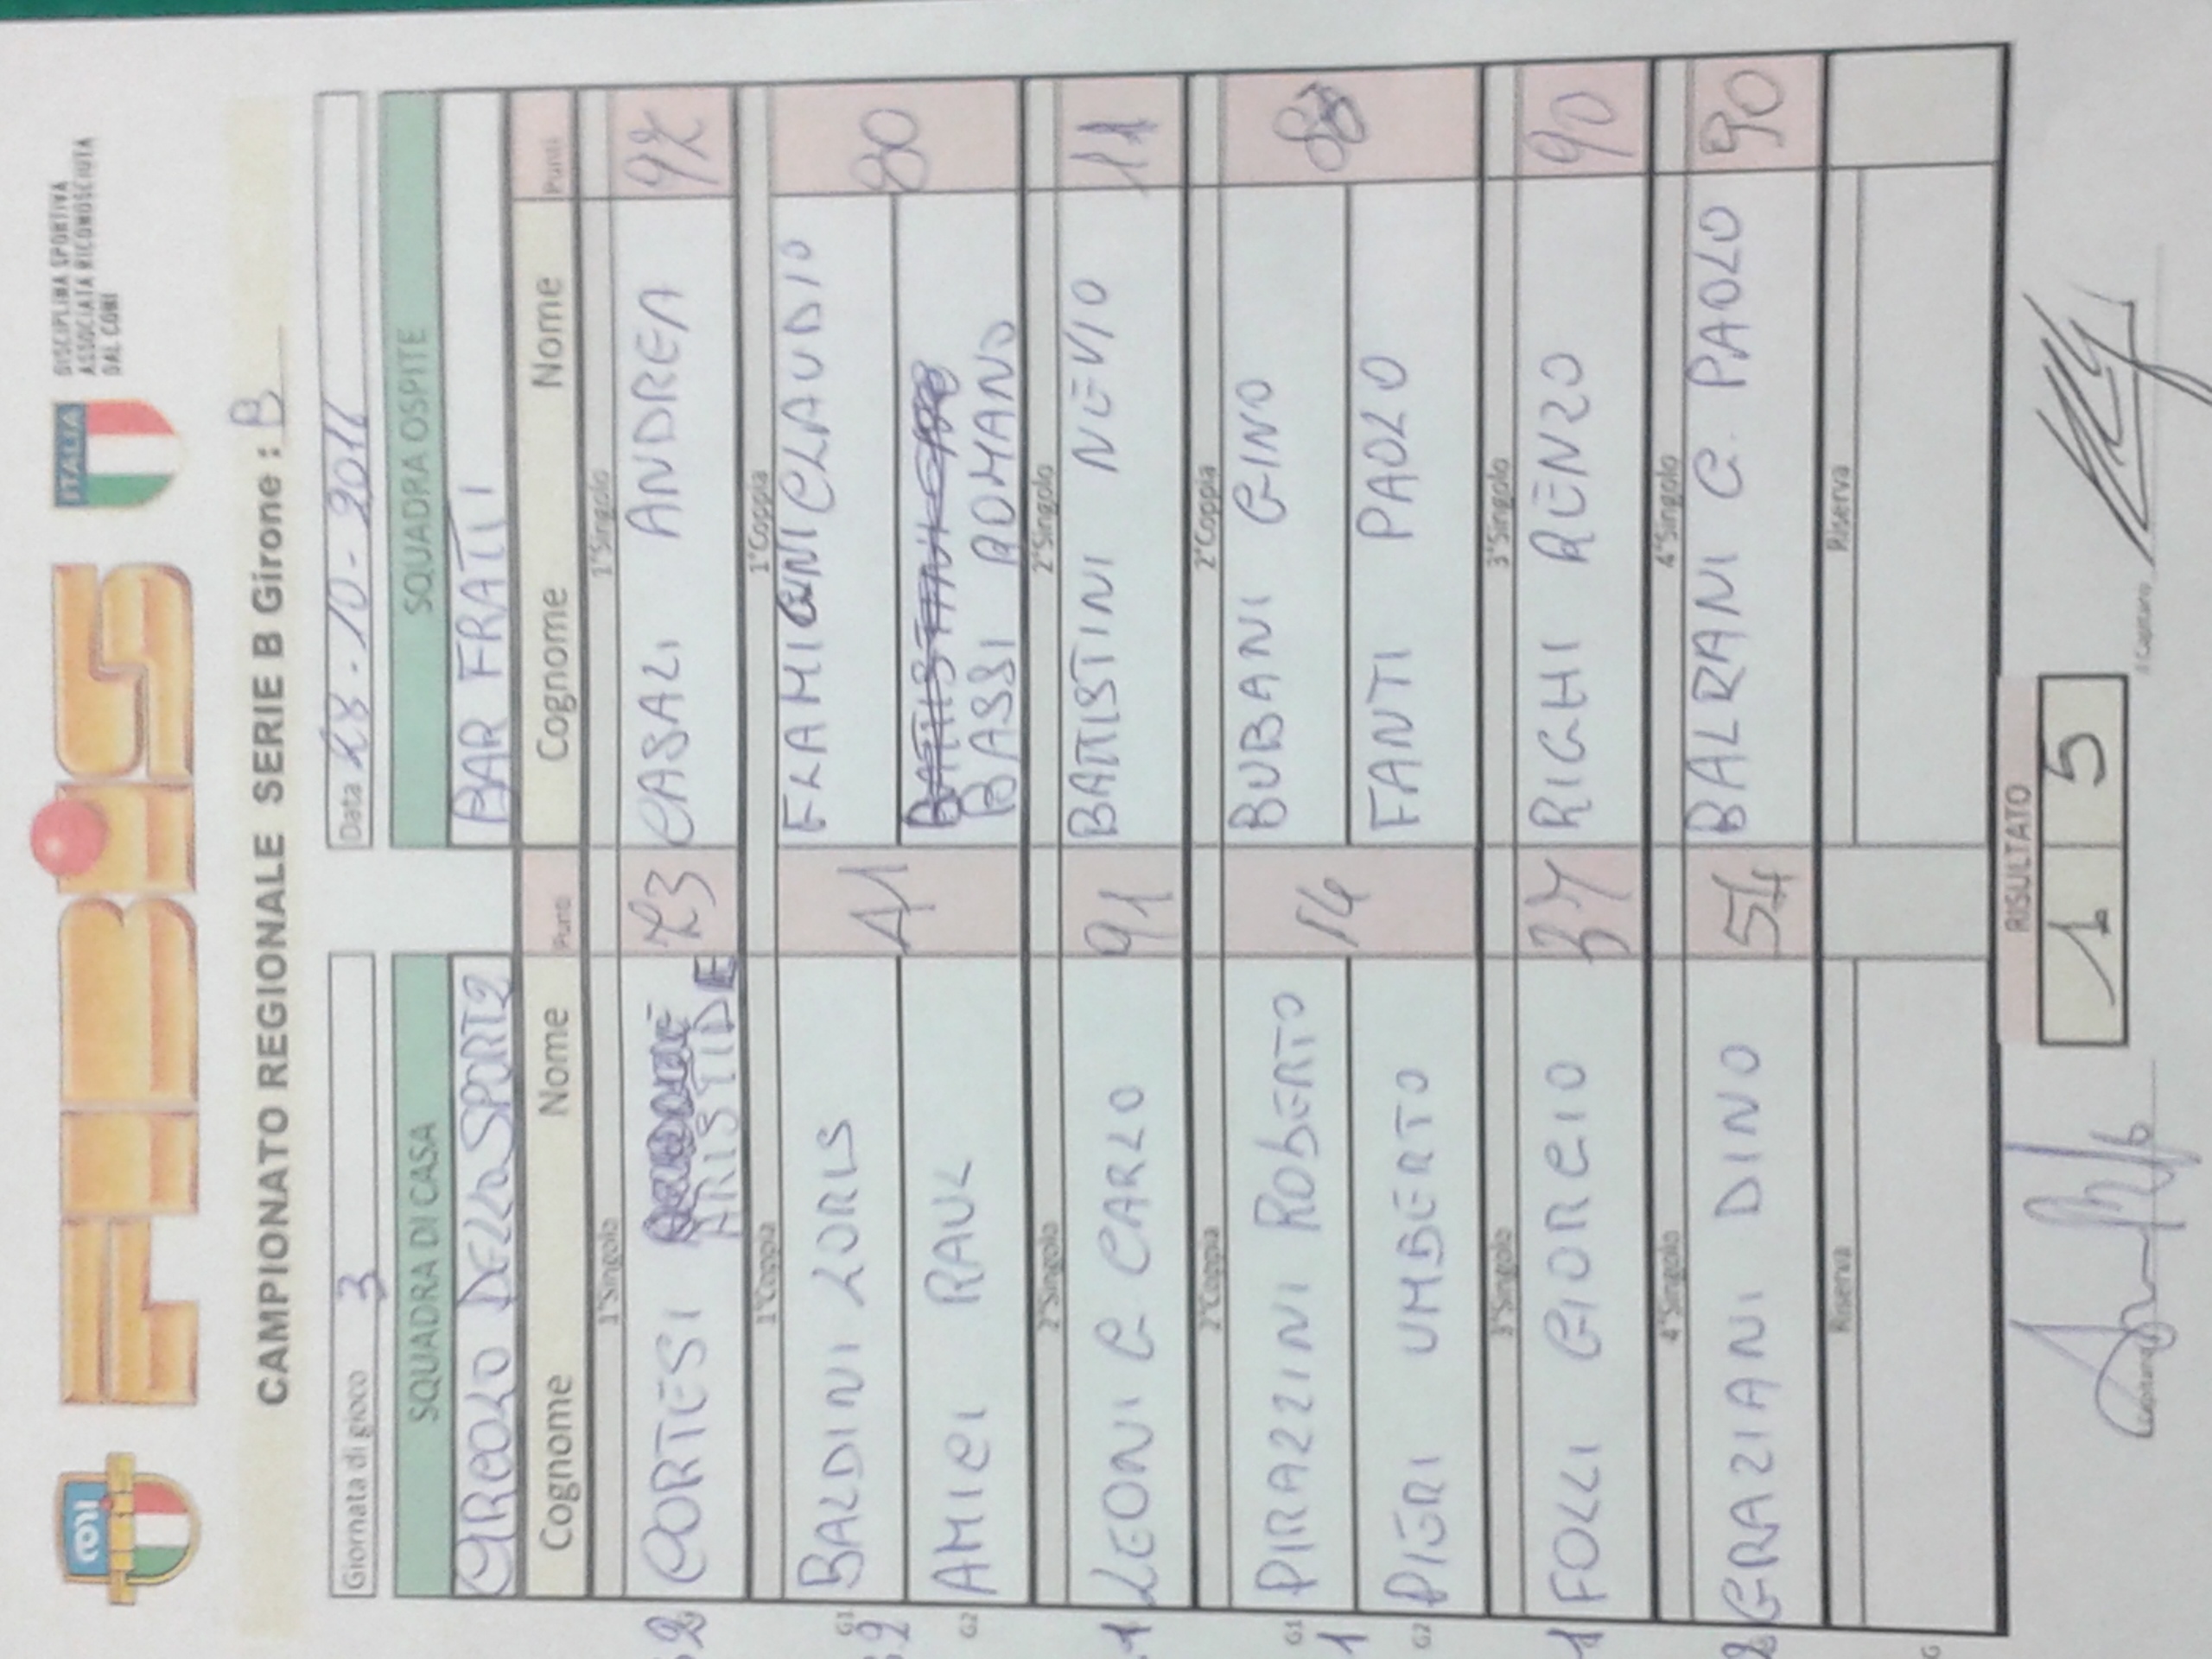 CONI
FIBiS
ITALIA
DISCIPLINA SPORTIVA
ASSOCIATA RICONOSCIUTA
DAL CONI
CAMPIONATO REGIONALE SERIE B Girone : B
Giornata di gioco 3
Data 28-10-2016
SQUADRA DI CASA SQUADRA OSPITE
CIRCOLO DELLO SPORT 2 BAR FRATTI
Cognome Nome Punti Cognome Nome Punti
1°Singolo 1°Singolo
2 CORTESI ARISTIDE 73 CASALI ANDREA 92
1°Coppia 1°Coppia
G1 BALDINI LORIS 41 FLAMIGNI CLAUDIO 80
2
G2 AMICI RAUL BASSI ROMANO
2°Singolo 2°Singolo
1 LEONI G CARLO 91 BATTISTINI NEVIO 11
2°Coppia 2°Coppia
G1 PIRAZZINI ROBERTO 14 BUBANI GINO
1
G2 PIERI UMBERTO FANTI PAOLO
3°Singolo 3°Singolo
1 FOLLI GIORGIO 37 RIGHI RENZO 90
4°Singolo 4°Singolo
2 GRAZIANI DINO 54 BALRANI G. PAOLO 90
Riserva Riserva
G
RISULTATO
1 5
Capitano Il Capitano